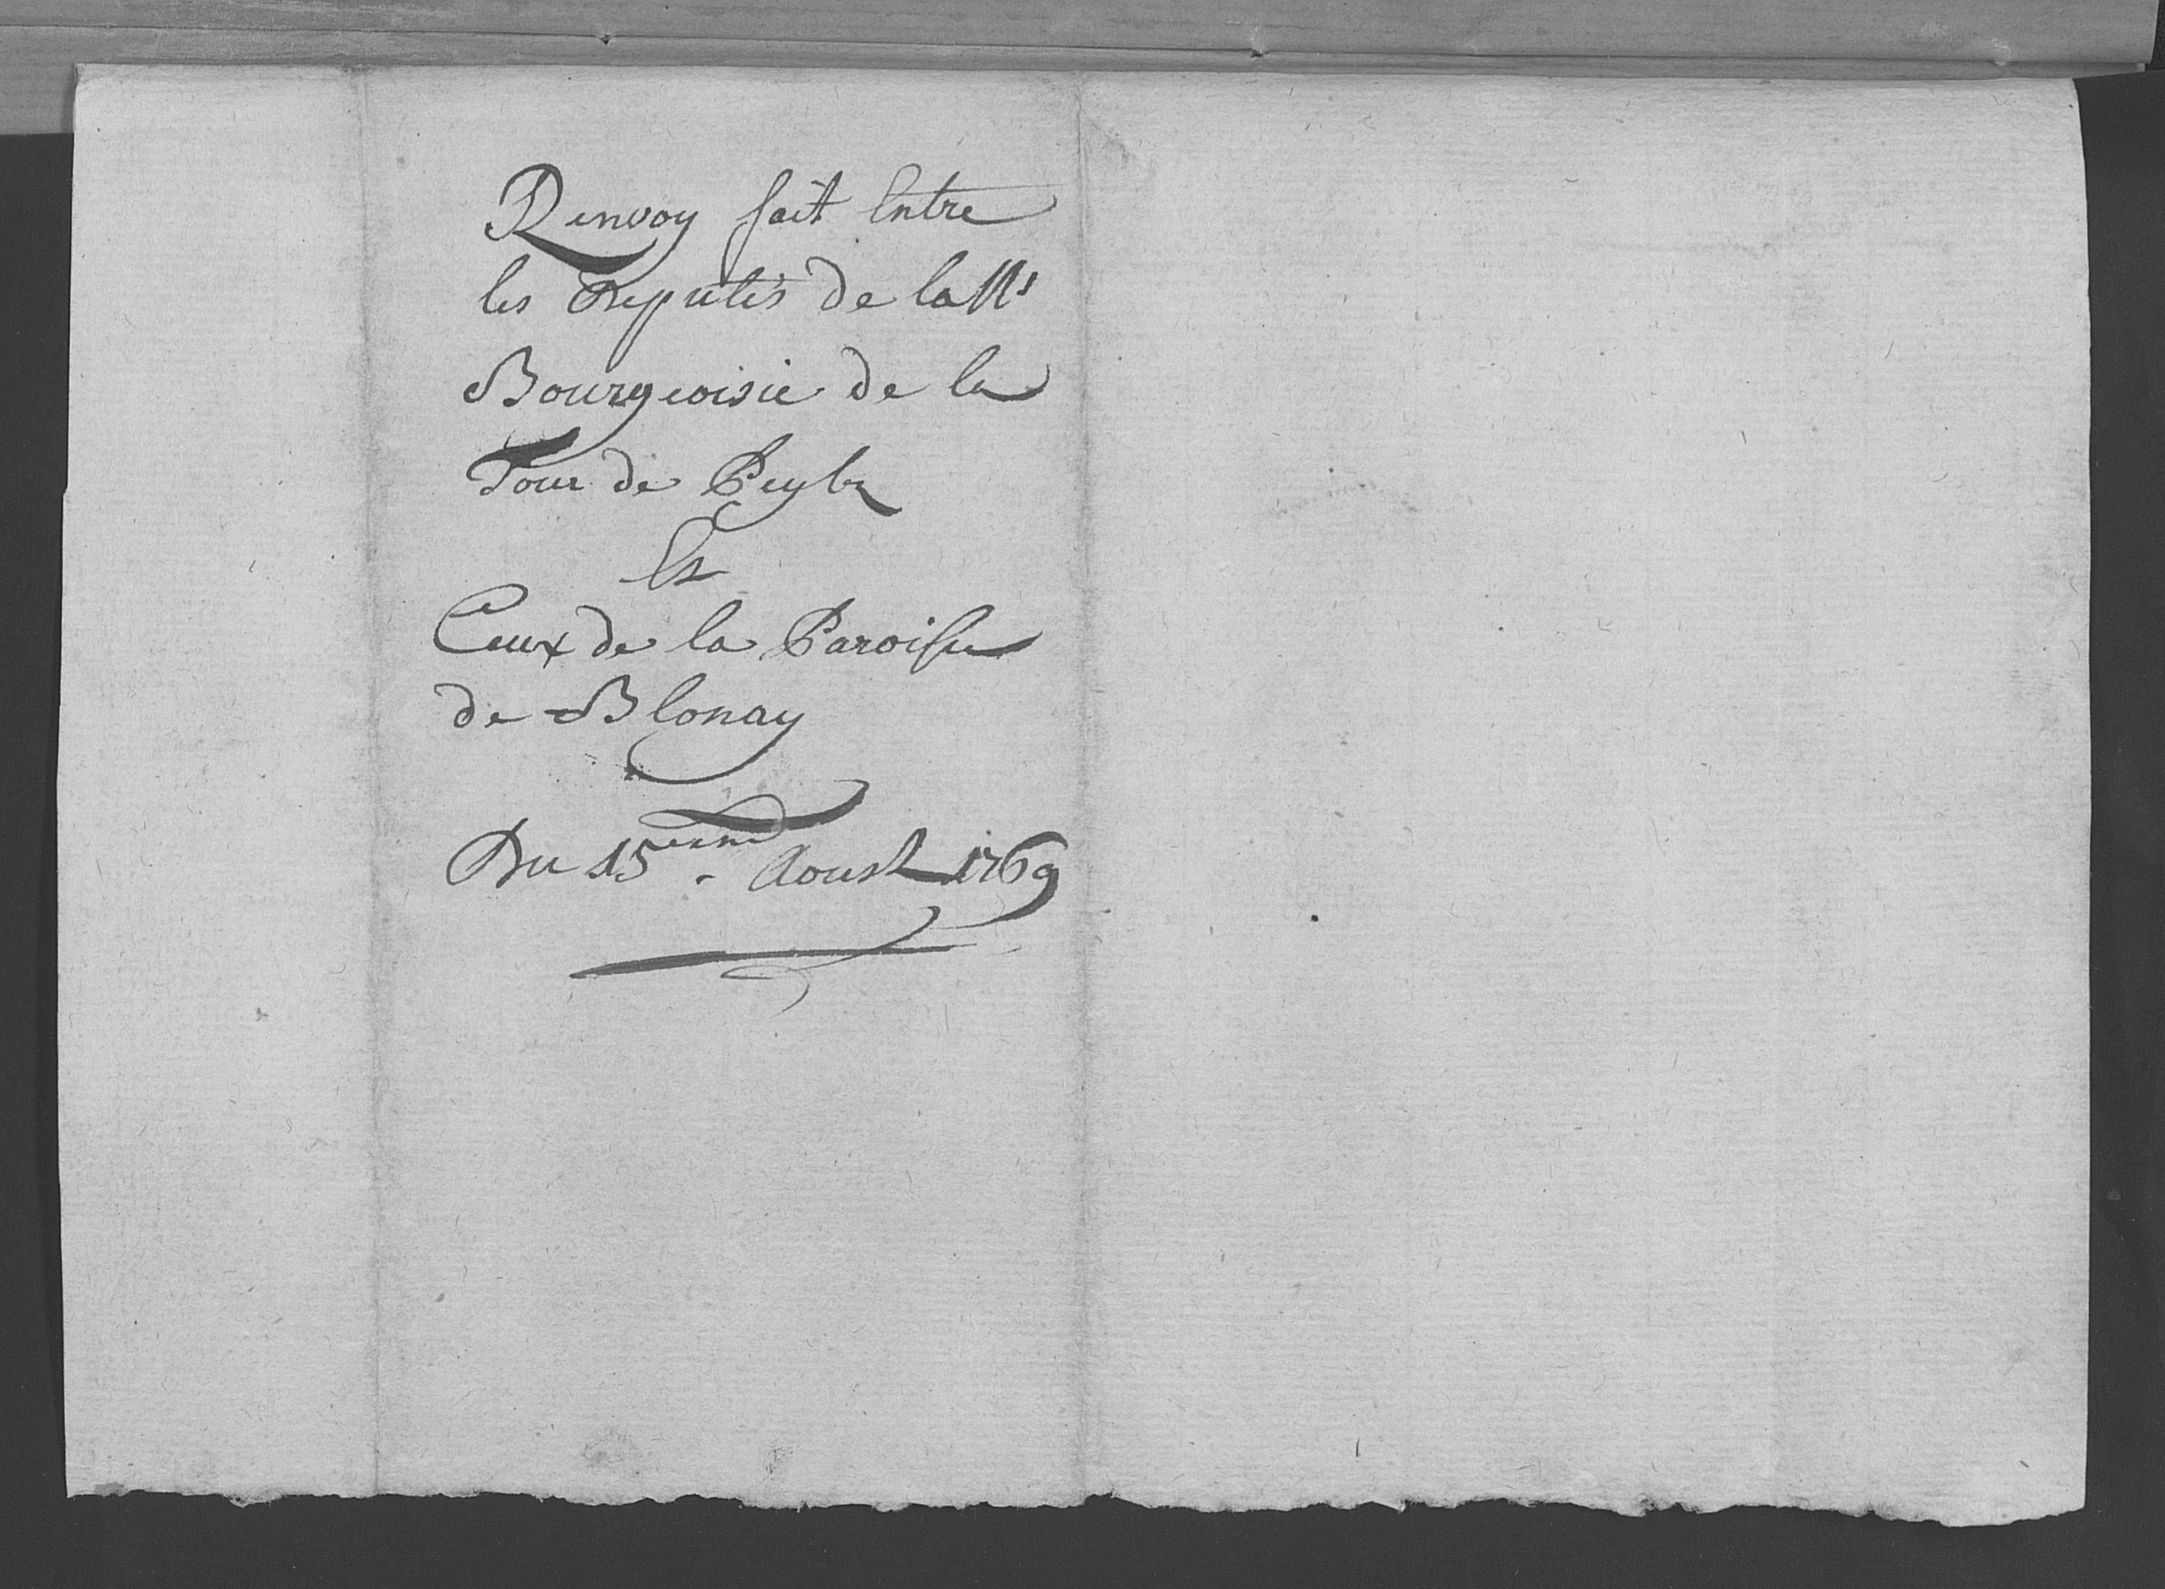 Renvoy fait Entre
les Députés de la Ne
Bourgeoisie de la
Tour de Peylz
Et
Ceux de la Paroisse
de Blonay
Du 15eme Aoust 1769